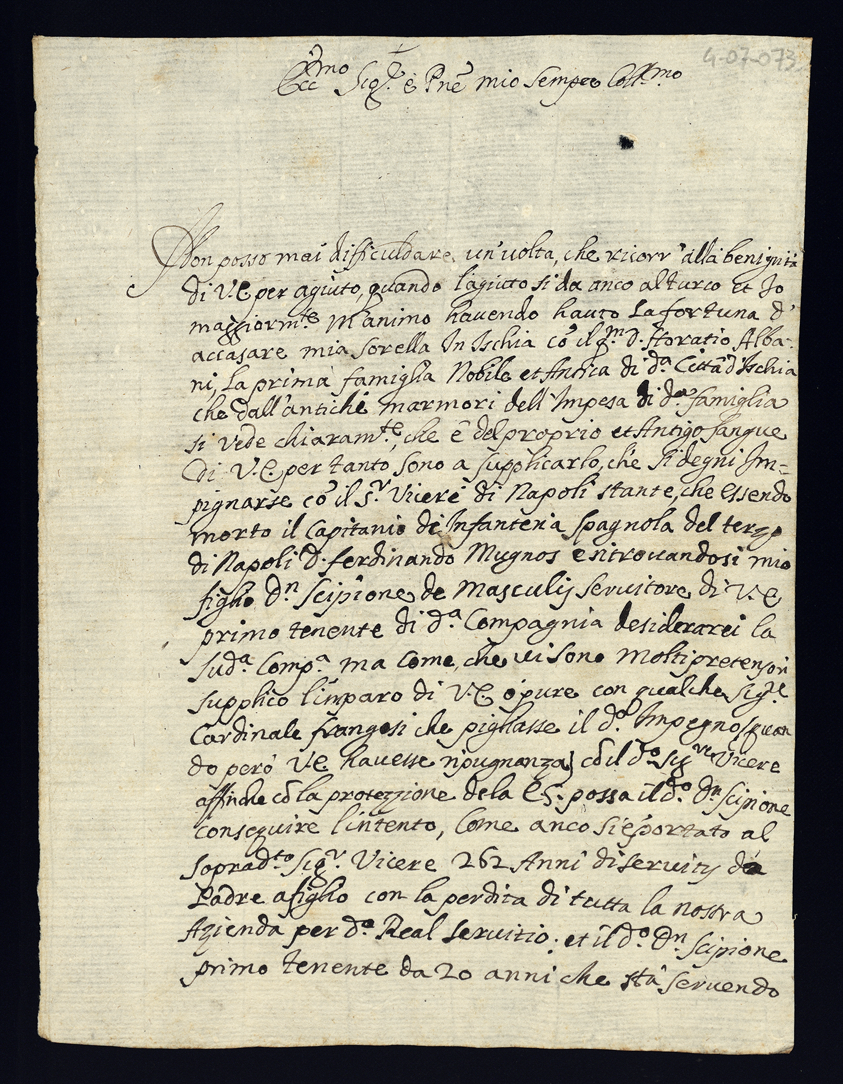 4-07-073
Ecc.mo Sig.r e Pne mio sempre Coll.mo
Non posso mai difficuldare, un'volta, che ricorr' alla benignità
di V.E. per agiuto, quando l'agiuto si da anco al turco et Io
maggiorm.te m'animo havendo hauto la fortuna d'
accasare mia sorella In Ischia cò il q.m D. Horatio Alba-
ni, La prima famiglia Nobile et Antica di d.a Città d'Ischia
che dall'antichi marmori dell'Impesa di d.a famiglia
si vede chiaram.te, che è del proprio et Antigo sangue
di V.E. per tanto sono a supplicarlo, che si degni Im=
pignarse cò il s.r Vicerè di Napoli stante, che essendo
morto il Capitanio de Infanteria spagnola del terzo
di Napoli D. ferdinando Mugnos e ritrovandosi mio
figlio D.n Scipione de Masculis servitore di V.E
primo tenente di d.a Compagnia desiderarei la
sud.a Comp.a ma come, che vi sono molti pretensori
supplico l'imparo di V.E. ò pure con qualche sig.re
Cardinale frangesi che pigliasse il d.o Impegno (quan
do però V.E. havesse ripugnanza) cò il d.o sig.re Vicere
affinche cò la protezzione dela E.S. possa il d.o D.n Scipione
conseguire l'intento, Come anco si è portato al
soprad.to Sig.r Vicere 262 Anni di servitij da
Padre a figlio con la perdita di tutta la nostra
Azienda per d.o Real servitio; et il d.o D.n Scipione
primo tenente da 20 anni che stà servendo